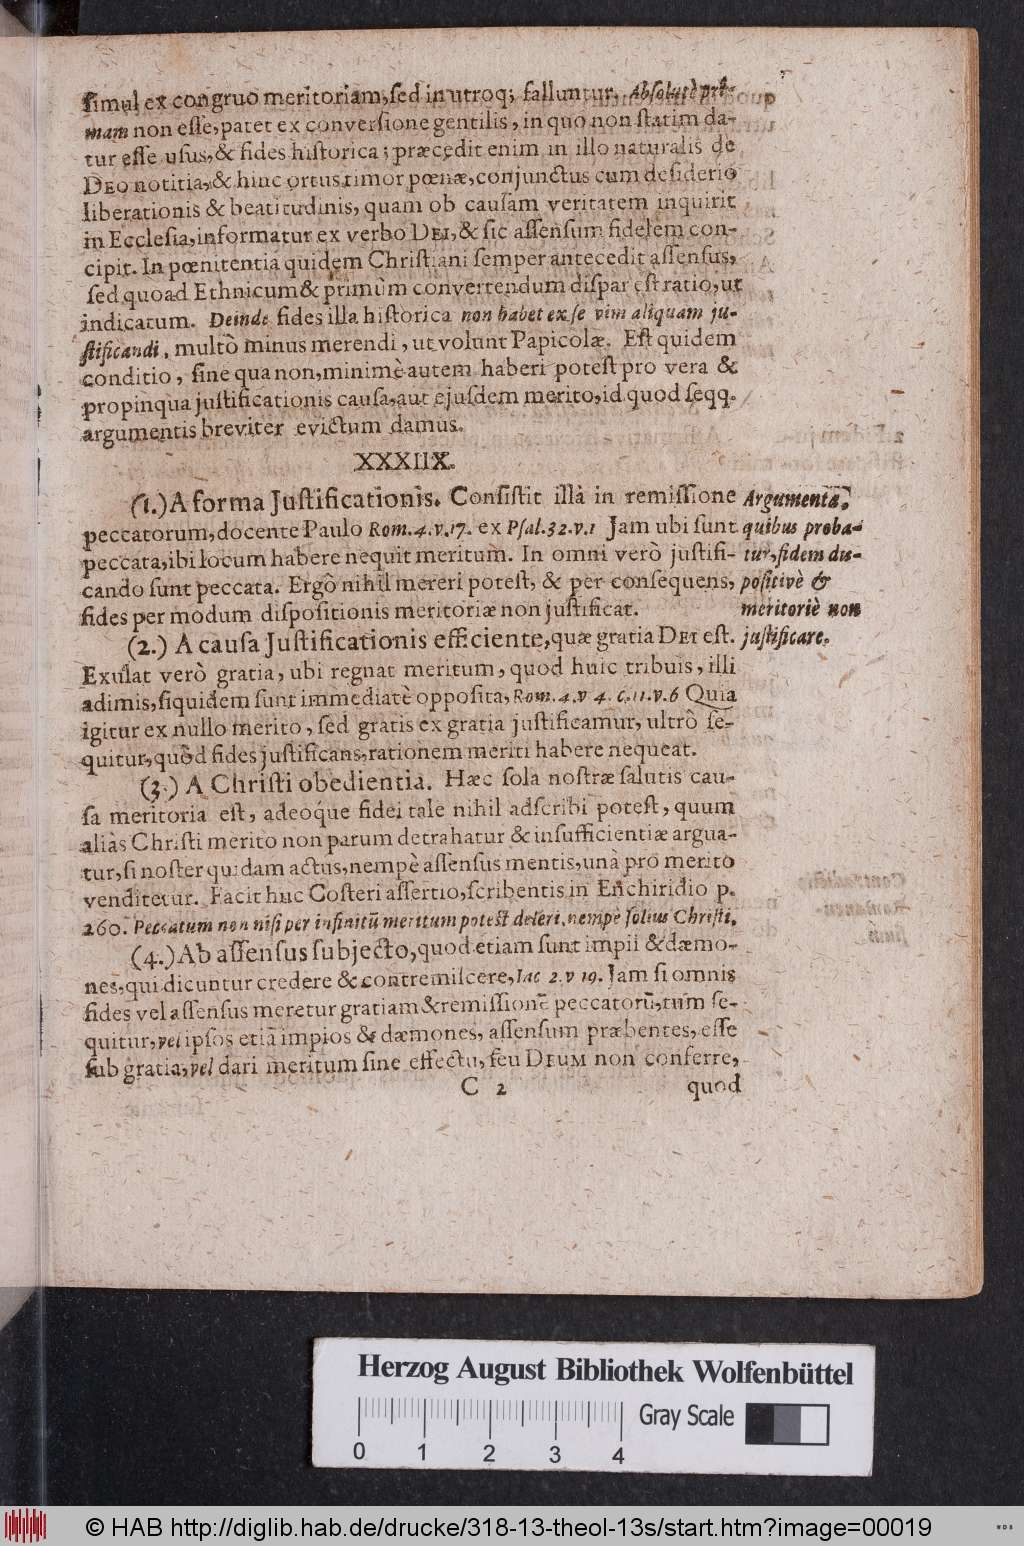 simul ex congruo meritoriam, sed in utroq; falluntur. Absolutè pri-
mam non esse, patet ex conversione gentilis, in quo non statim da-
tur esse usus, & fides historica; præcedit enim in illo naturalis de
DEO notitia, & hinc ortus timor pœnæ, conjunctus cum desiderio
liberationis & beatitudinis, quam ob causam veritatem inquirit
in Ecclesia, informatur ex verbo DEI, & sic assensum fidelem con-
cipit. In pœnitentia quidem Christiani semper antecedit assensus,
sed quoad Ethnicum & primùm convertendum dispar est ratio, ut
indicatum. Deinde fides illa historica non habet ex se vim aliquam ju-
stificandi, multò minus merendi, ut volunt Papicolæ. Est quidem
conditio, sine qua non, minimè autem haberi potest pro vera &
propinqua justificationis causa, aut ejusdem merito, id quod seqq.
argumentis breviter evictum damus.
XXXIIX.
(1.) A forma Justificationis. Consistit illa in remissione
peccatorum, docente Paulo Rom. 4. v. 17. ex Psal. 32. v. 1 Jam ubi sunt
peccata, ibi locum habere nequit meritum. In omni verò justifi-
cando sunt peccata. Ergò nihil mereri potest, & per consequens,
fides per modum dispositionis meritoriæ non justificat.
Argumenta,
quibus proba-
tur, fidem dis-
positivè &
meritoriè non
justificare.
(2.) A causa Justificationis efficiente, quæ gratia DEI est.
Exulat verò gratia, ubi regnat meritum, quod huic tribuis, illi
adimis, siquidem sunt immediatè opposita, Rom. 4. v 4. c. 11. v. 6 Quia
igitur ex nullo merito, sed gratis ex gratia justificamur, ultrò se-
quitur, quòd fides justificans, rationem meriti habere nequeat.
(3.) A Christi obedientia. Hæc sola nostræ salutis cau-
sa meritoria est, adeoq́ue fidei tale nihil adscribi potest, quum
aliàs Christi merito non parum detrahatur & insufficientiæ argua-
tur, si noster quidam actus, nempè assensus mentis, unà pro merito
venditetur. Facit huc Costeri assertio, scribentis in Enchiridio p.
260. Peccatum non nisi per infinitū meritum potest deleri, nempè solius Christi.
(4.) Ab assensus subjecto, quod etiam sunt impii & dæmo-
nes, qui dicuntur credere & contremiscere, Iac 2. v 19. Jam si omnis
fides vel assensus meretur gratiam & remissionē peccatorū, tum se-
quitur, vel ipsos etiā impios & dæmones, assensum præbentes, esse
sub gratia, vel dari meritum sine effectu, seu DEUM non conferre,
C 2 quod
Herzog August Bibliothek Wolfenbüttel
Gray Scale
0 1 2 3 4
© HAB http://diglib.hab.de/drucke/318-13-theol-13s/start.htm?image=00019